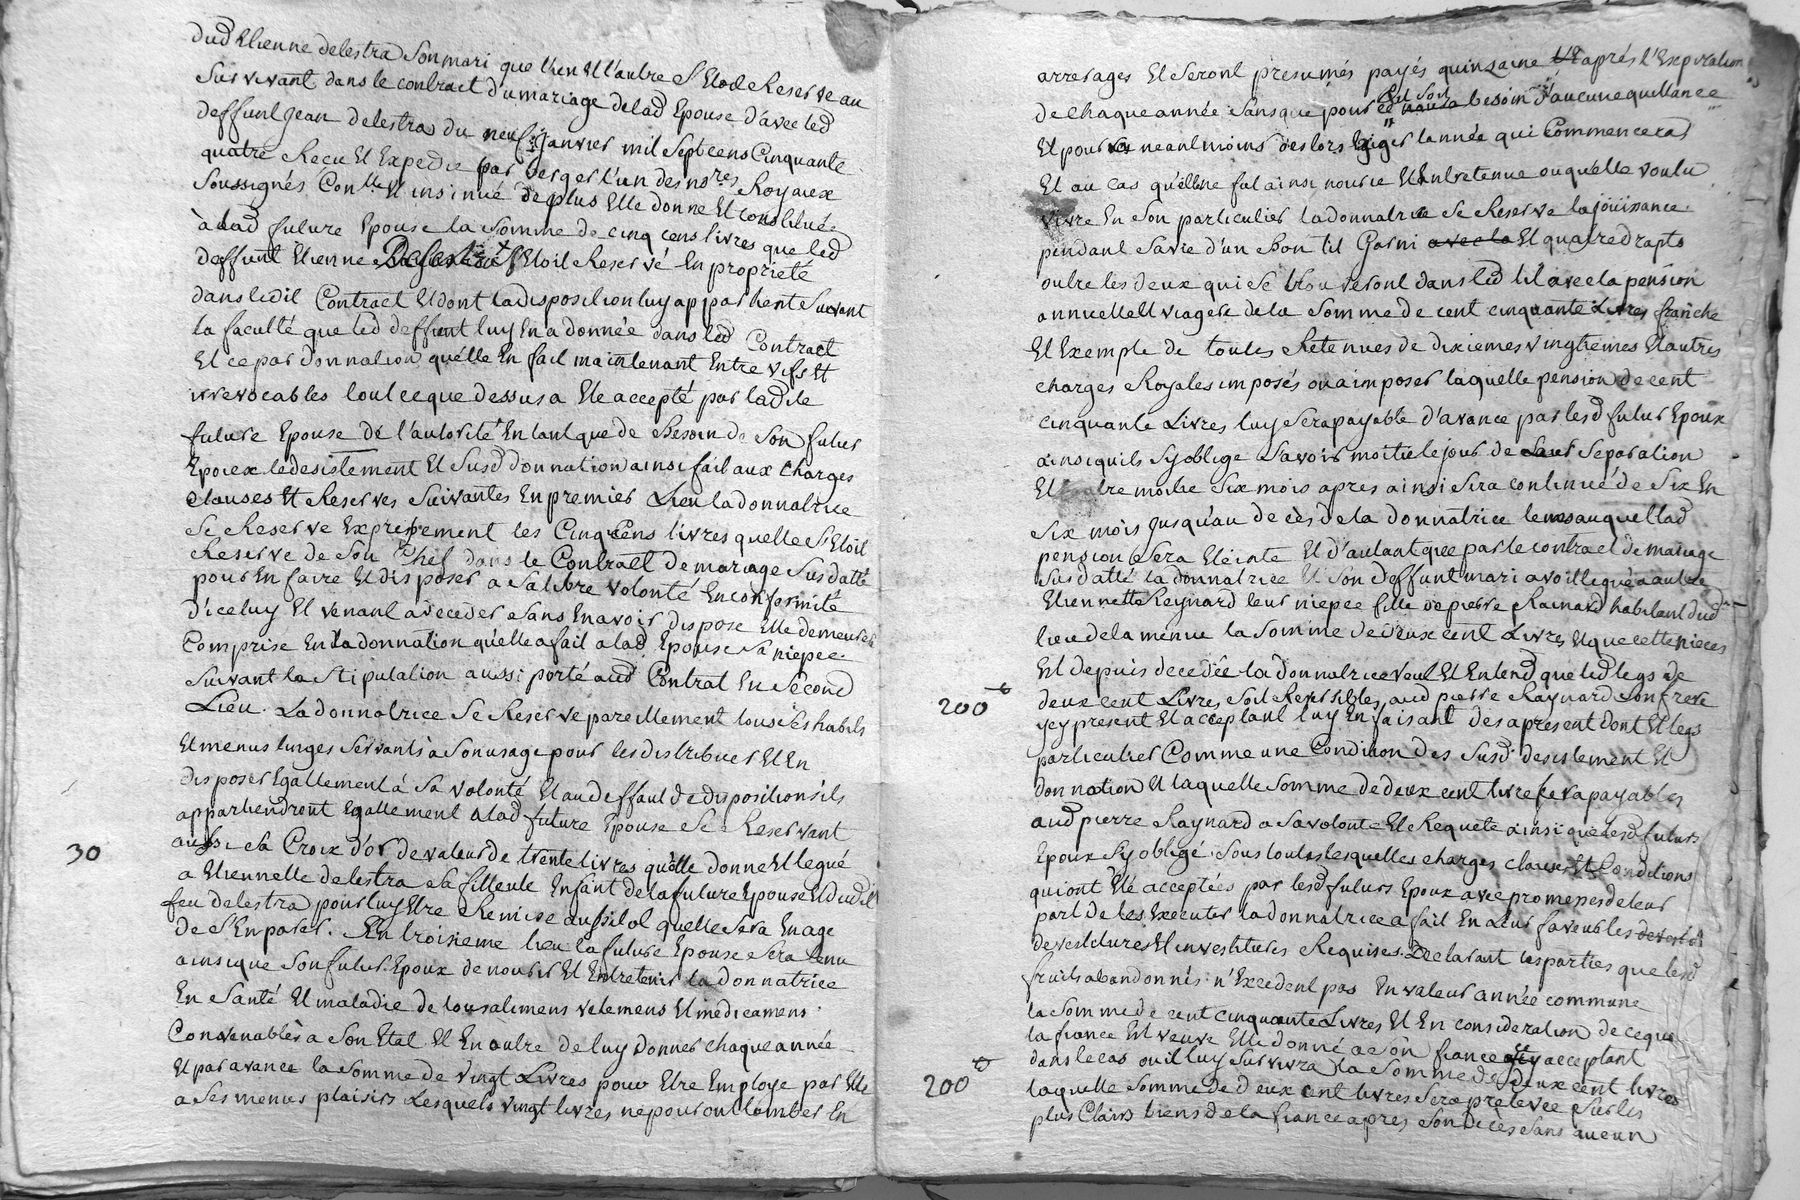 dud Etienne delestra Son mari que l'un Et l'autre S'Etoit Reserve au
Survivant dans le contract du mariage de lad Epouse d'avec led
deffunt Jean delestras du neuf Janvier mil Sept cens Cinquante
quatre Reçu Et Expedie par berger l'un des nores Royaux
Soussignés Conlle Et insinué de plus Elle donne Et constitue
à lad future Epouse la Somme de cinq cens livres que led
deffunt Etienne Delestra S'Etoit Reservé En proprieté
dans ledit Contract Et dont la disposition luy appartient Suivant
la faculté que led deffunt luy En a donnée dans led Contract
Et ce par donnation quélle En fait maintenant Entre vifs Et
irrevocables tout ce que dessus a Ete accepté par ladite
future Epouse de l'autorité En tant que de Besoin de Son futur
Epoux le desistement Et Susd donnation ainsi fait aux Charges
clauses Et Reserves Suivantes En premier Lieu la donnatrice
Se Reserve Expressement les Cinq Cens livres quelle S'Etoit
Reserve de Son Chef dans le Contract De mariage Susdatté
pour En faire Et disposer a Sa libre volonté En conformité
d'iceluy Et venant a deceder Sans En avoir dispose Elle demeurera
Comprise En la donnation quélle a fait a lad Epouse Sa niepce
Suivant la Stipulation aussi porté aud Contrat En Second
Lieu. La donnatrice Se Reserve pareillement tous Ses habits
Et menus linges Servants à Son usage pour les distribuer Et En
disposer Egallement à Sa volonté Et au deffaut de disposition ils
appartiendront Egallement a lad future Epouse Se Reservant
aussi Sa Croix d'or de valeur de trente livres quélle donne Et legué
30
a Etiennette delestra Sa filleule Enfant de la future Epouse Et dudit
feu delestra pour luy Etre Remise aussitot quelle Sera En age
de S'En parer. En troisieme lieu la future Epouse Sera tenu
ainsi que Son futur Epoux de nourir Et Entretenir la donnatrice
En Santé Et maladie de tous alimens vetemens Et medicamens
Convenables a Son Etat Et En outre de luy donner chaque année
Et par avance la Somme de vingt Livres pour Etre Employe par Elle
a Ses menus plaisirs Lesquels vingt livres ne pouront tomber En
arrerages Et Seront presumés payés quinzaine aprés l'Expiration
de chaque année Sans que pour ce Soit besoin d'aucune quittance
Et pour neantmoins deslors Exiger lannée qui Commencera
Et au cas quélle ne fut ainsi nourie Et Entretenue ou quélle voulu
vivre En Son particulier la donnatrice Se Reserve la joüissance
pendant Sa vie d'un bon lit Garni avec la Et quatre draps
outre les deux qui Se trouveront dans led lit avec la pension
annuelle Et viagere de la Somme de cent cinquante Livres franche
Et Exempte de toutes Retenues de dixiemes vingtiemes Et autres
charges Royales imposés ou a imposer laquelle pension de cent
cinquante Livres luy Sera payable d'avance par lesd futur Epoux
ainsi quils Sy oblige Savoir moitié le jour de Separation
Et l'autre moitie Six mois apres ainsi Sera continué de Six En
Six mois jusqu'au decès de la donnatrice auquel lad
pension Sera Eteinte Et d'autant que par le contract de mariage
Susdatté la donnatrice Et Son deffunt mari avoit legué a autre
Etiennette Reynard leur niepce fille de pierre Rainard habitant dud
lieu de la menue la Somme de deux cent Livres Et que cette niece
Est depuis decedée la donnatrice veut Et Entend que led legs de
200
deux cent Livres Soit Reversibles aud pierre Raynard Son frere
icy present Et acceptant luy En faisant des apresent dont Et legs
particulier Comme une Condition des Susd desistement Et
donnation Et laquelle Somme de deux cent livre Sera payables
aud pierre Raynard a Sa volonte Et Requete ainsi que lesd futurs
Epoux Sy obligé. Sous toutes lesquelles charges clauses Et Conditions
qui ont Eté acceptées par lesd futurs Epoux avec promesses de leur
part de les Executer la donnatrice a fait En Leur faveur les
de vestitures Et investitures Requises. Declarant les parties que lesd
fruits abandonnés n'Excedent pas En valeur année commune
la Somme de cent cinquante Livres Et En consideration de ce que
la fiance Est veuve Elle donné a Son fiance acceptant
dans le cas ou il luy Survivra la Somme de deux cent livres
200
laquelle Somme de deux cent livres Sera prelevée Sur les
plus Clairs biens de la fiance apres Son deces Sans aucun